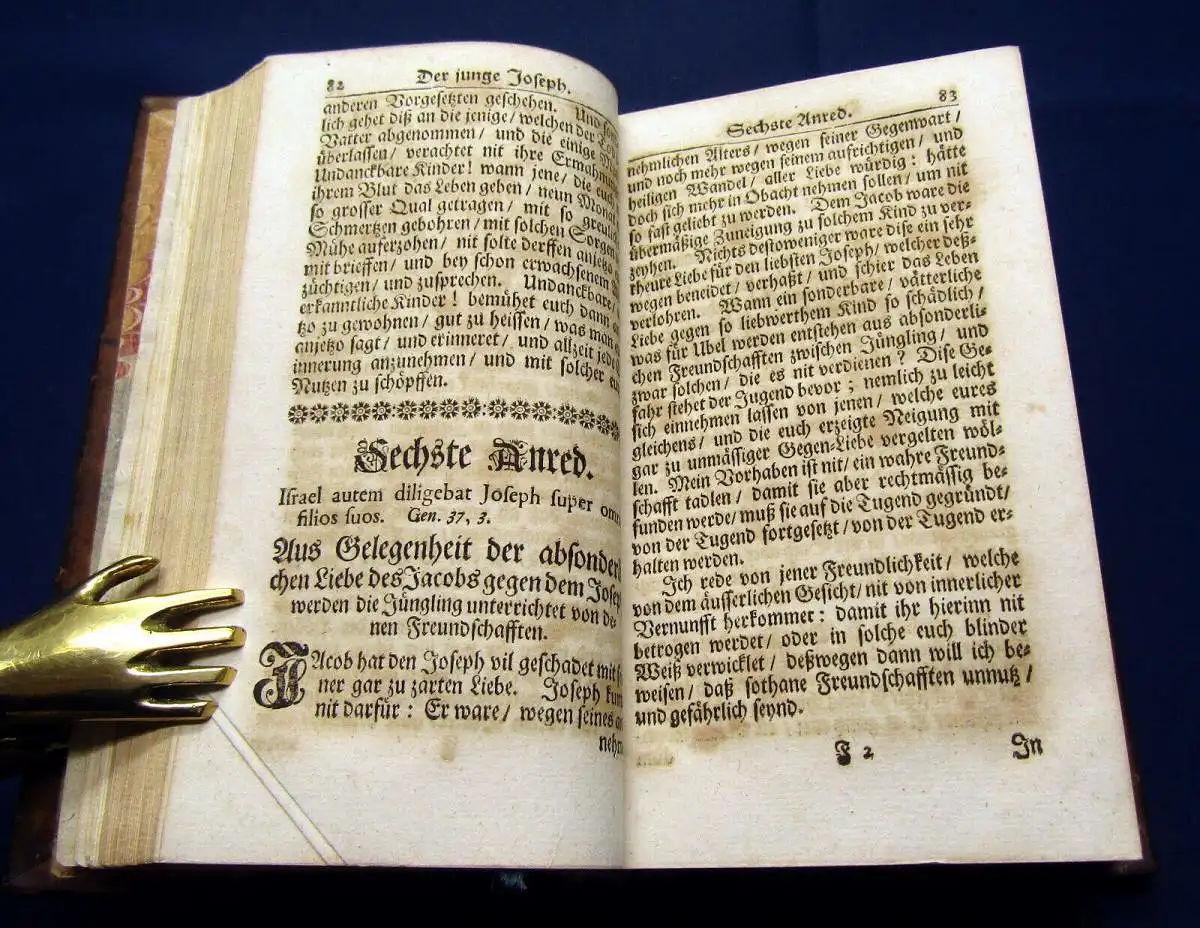 82 Der junge Joseph.
anderen Vorgesetzten geschehen. Und
lich gehet diß an die jenige/ welchen der
Vatter abgenommen/ und die einige
überlassen/ verachtet nit ihre
Undanckbare Kinder! wann jene/ die
ihrem Blut das Leben geben/ neun
so grosser Qual getragen/ mit so
Schmertzen gebohren/ mit solchen Sorgen
Mühe auferzohen/ nit solte derffen anjetzo
mit brieffen/ und bey schon erwachsenem
züchtigen/ und zusprechen. Undanckbare/
erkanntliche Kinder! bemühet euch dann
tzo zu gewohnen/ gut zu heissen/ was man
anjetzo sagt/ und erinneret/ und allzeit
innerung anzunehmen/ und mit solcher
Nutzen zu schöpffen.
Sechste Anred.
Israel autem diligebat Joseph super
filios suos. Gen. 37, 3.
Aus Gelegenheit der
chen Liebe des Jacobs gegen dem
werden die Jüngling unterrichtet von
nen Freundschafften.
JAcob hat den Joseph vil geschadet mit
ner gar zu zarten Liebe. Joseph
nit darfür: Er ware/ wegen seines
Sechste Anred. 83
nehmlichen Alters/ wegen seiner Gegenwart/
und noch mehr wegen seinem aufrichtigen/ und
heiligen Wandel/ aller Liebe würdig: hätte
doch sich mehr in Obacht nehmen sollen/ um nit
so fast geliebt zu werden. Dem Jacob ware die
übermäßige Zuneigung zu solchem Kind zu ver-
zeyhen. Nichts destoweniger ware dise ein sehr
theure Liebe für den liebsten Joseph/ welcher deß-
wegen beneidet/ verhaßt/ und schier das Leben
verlohren. Wann ein sonderbare/ vätterliche
Liebe gegen so liebwerthem Kind so schädlich/
was für Ubel werden entstehen aus absonderli-
chen Freundschafften zwischen Jüngling/ und
zwar solchen/ die es nit verdienen? Dise Ge-
fahr stehet der Jugend bevor; nemlich zu leicht
sich einnehmen lassen von jenen/ welche eures
gleichens/ und die euch erzeigte Neigung mit
gar zu unmässiger Gegen-Liebe vergelten wöl-
len. Mein Vorhaben ist nit/ ein wahre Freund-
schafft tadlen/ damit sie aber rechtmässig be-
funden werde/ muß sie auf die Tugend gegründt/
von der Tugend fortgesetzt/ von der Tugend er-
halten werden.
Ich rede von jener Freundlichkeit/ welche
von dem äusserlichen Gesicht/ nit von innerlicher
Vernunfft herkommet: damit ihr hierinn nit
betrogen werdet/ oder in solche euch blinder
Weiß verwicklet/ deßwegen dann will ich be-
weisen/ daß sothane Freundschafften unnutz/
und gefährlich seynd.
F 2 In